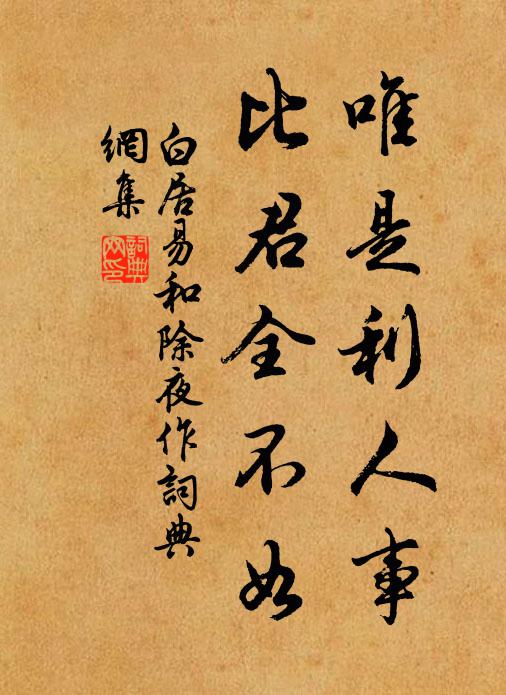 唯是利人事
比君全不如
白居易和除夜作詞典
網集
詞典
网印